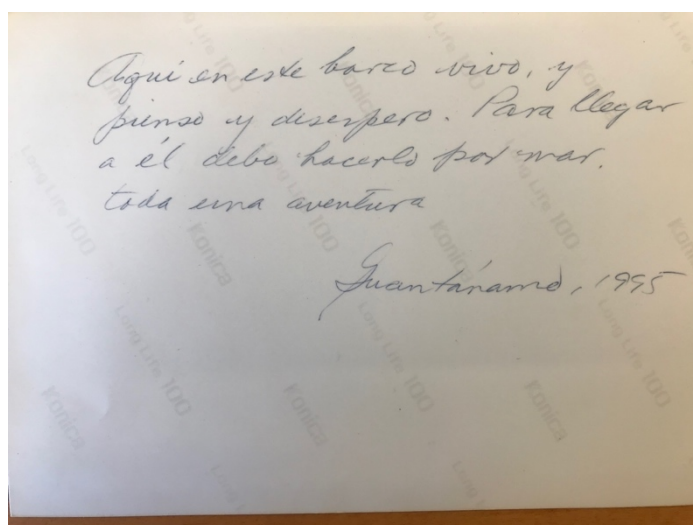 Aquí en este barco vivo, y
pienso y desespero. Para llegar
a él debo hacerlo por mar.
toda una aventura
Guantánamo, 1995
Konica
Long Life 100